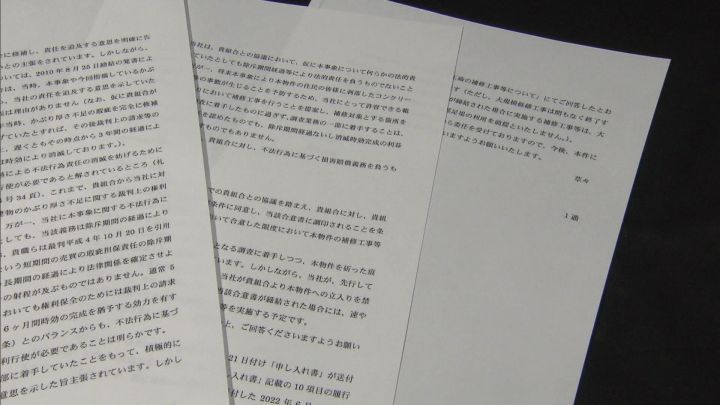 全に修補し、責任を追及する意思を明確に告
いとの主張をされています。しかしながら、
ついては、2010年8月25日締結の覚書によ
は、当時、本事象や今回指摘しているかぶ
、当社の責任を追及する意思を示していた
は理由がありません（なお、仮に貴組合が
当時、かぶり厚さ不足の瑕疵を完全に修補
げていたとすれば、その後裁判上の請求等の
上、遅くともその時点から3年間の経過によ
は時効により消滅しております。）。
過による不法行為責任の消滅を妨げるために
行使が必要であると解されているところ（札
号34頁）、これまで、貴組合から当社に対
建物のかぶり厚さ不足に関する裁判上の権利
万が一、当社に本事象に関する不法行為に
としても、当該義務は除斥期間の経過により
、貴職らは最判平成4年10月20日を引用
という短期間の売買の瑕疵担保責任の除斥期
長期間の経過により法律関係を確定させよ
の射程が及ぶものではありません。通常5
おいても権利保全のためには裁判上の請求
6ヶ月間時効の完成を猶予する効力を有す
条）とのバランスからも、不法行為に基づ
利行使が必要であることは明らかです。
部に着手していたことをもって、積極的に
意思を示した旨主張されています。しかし
当社は、貴組合との協議において、仮に本事象について何らかの法的責
ていたとしても除斥期間経過等により法的責任を負うものでない
が一、将来本事象により本物件の住民の皆様に剥落したコンクリー
の事故が生じることを予防するため、当社にとって許容できる範
において補修工事を行うことを提案し、補修対象となる箇所を
査に着手したものに過ぎず、調査業務の一部に着手することは、
を認めたものでも、除斥期間経過ないし消滅時効完成の利益
すものでもありません。
貴組合に対し、不法行為に基づく損害賠償義務を負うも
での貴組合との協議を踏まえ、貴組合に対し、貴組
条件に同意し、当該合意書に調印されることを条
いて合意した限度において本物件の補修工事等
となる調査に着手しつつ、本物件を斫った痕
います。しかしながら、当社が、先行して
当社が貴組合より本物件への立入りを禁
当該合意書が締結された場合には、速や
等を実施する予定です。
上、ご回答くださいますようお願い
21日付け「申し入れ書」が送付
し入れ書」記載の10項目の履行
付した2022年6月
の補修工事等について」にてご回答したとお
す（ただし、大規模修繕工事は間もなく終了す
が締結された場合に実施する補修工事等は、大
足場の利用を前提といたしません。）。
ら委任を受けておりますので、今後、本件に
いますようお願いいたします。
草々
1通